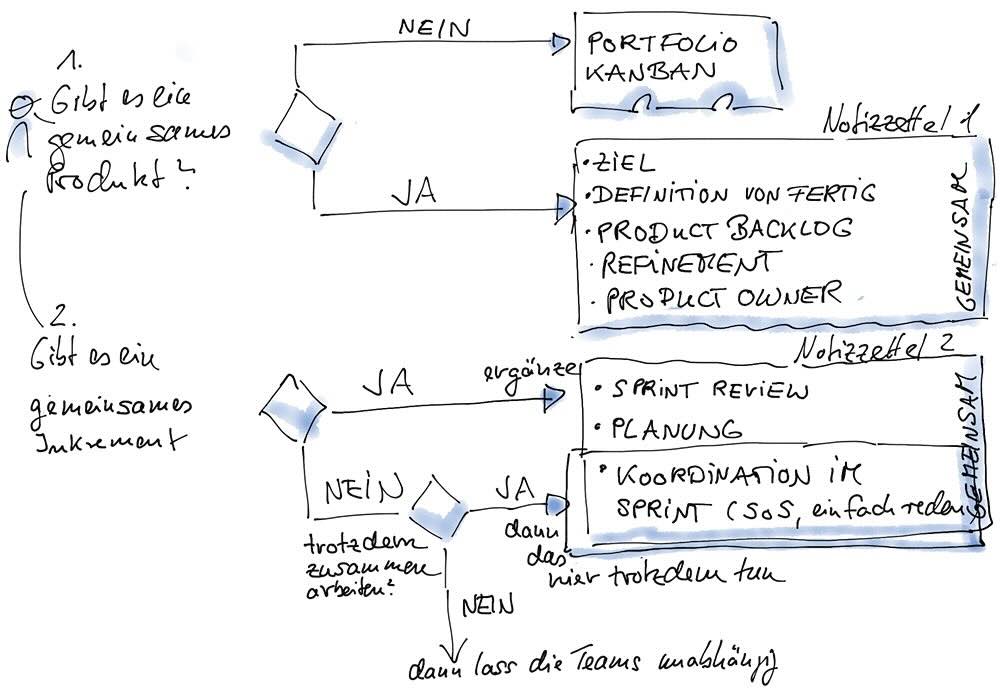 1.
Gibt es ein
gemeinsames
Produkt?
NEIN
PORTFOLIO
KANBAN
JA
Notizzettel 1
• ZIEL
• DEFINITION VON FERTIG
• PRODUCT BACKLOG
• REFINEMENT
• PRODUCT OWNER
GEMEINSAM
2.
Gibt es ein
gemeinsames
Inkrement
JA
ergänze
Notizzettel 2
• SPRINT REVIEW
• PLANUNG
• KOORDINATION IM
SPRINT (SoS, einfach reden
GEMEINSAM
NEIN
trotzdem
zusammen
arbeiten?
JA
dann
das
hier trotzdem tun
NEIN
dann lass die Teams unabhängig